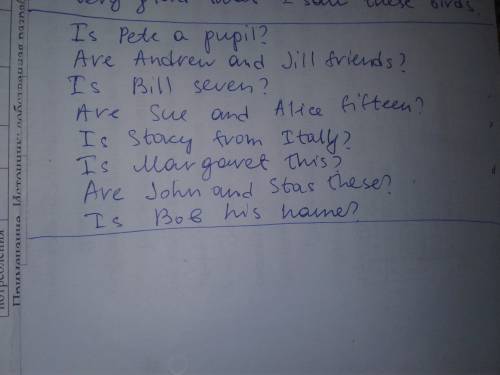 very glad when I saw these birds.
Is Pete a pupil?
Are Andrew and Jill friends?
Is Bill seven?
Are Sue and Alice fifteen?
Is Stacy from Itally?
Is Margaret this?
Are John and Stas these?
Is Bob his name?
потребления
Примечания. Источник: